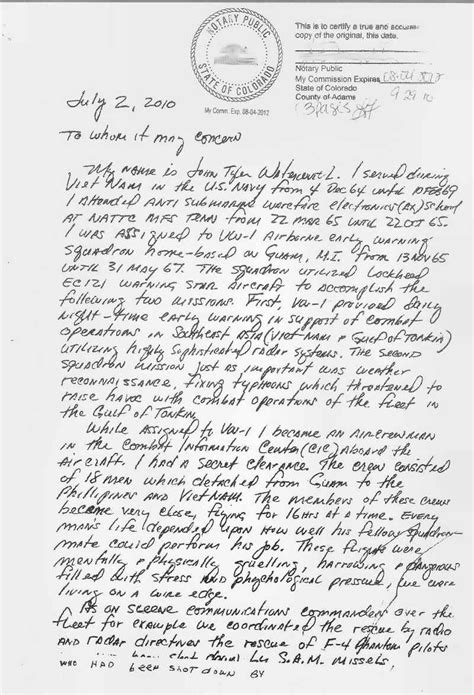 NOTARY PUBLIC
STATE OF COLORADO
My Comm. Exp. 08-04-2012
This is to certify a true and accurate
copy of the original, this date.
Notary Public
My Commission Expires 08-04
State of Colorado
County of Adams
9-29-10
July 2, 2010
To whom it may concern
My name is John Tyler I served during
Viet Nam in the U.S. Navy from 4 Dec 64 until 10 FEB 69
I Attended ANTI submarine warefire electronics (AX) School
AT NATTC MFS TENN from 22 MAR 65 UNTIL 22 OCT 65.
I was Assigned to VW-1 Airborne early warning
squadron home-based on Guam, M.I. from 13 NOV 65
UNTIL 31 MAY 67. The squadron utilized Lockheed
EC121 WARNING STAR Aircraft to Accomplish the
following two missions. First, VW-1 provided daily
Night-time early warning in support of combat
operations in Southeast ASIA (VIET-NAM & Gulf of Tonkin)
UTILIZING highly sophisticated radar systems. The second
squadron mission just as important was weather
reconnaissance, fixing typhoons which threatened to
raise havoc with combat operations of the fleet in
the Gulf of Tonkin.
While Assigned to VW-1 I became AN Aircrewman
in the Combat Information Center (CIC) Aboard the
Aircraft. I had a Secret Clearance. The crew consisted
of 18 men which detached from Guam to the
Phillipines AND VIETNAM. The members of these crews
became very close, flying for 16 HRS at a time. Every
man's life depended upon how well his fellow squadron-
mate could perform his job. These flights were
mentally & physically gruelling, harrowing & dangerous
filled with stress AND phychological pressure, we were
living on a wire edge.
As on scene communications commanders over the
fleet for example we coordinated the rescue by radio
AND radar directives the rescue of F-4 Phantom pilots
S.A.M. Missels,
WHO HAD been SHOT DOWN BY